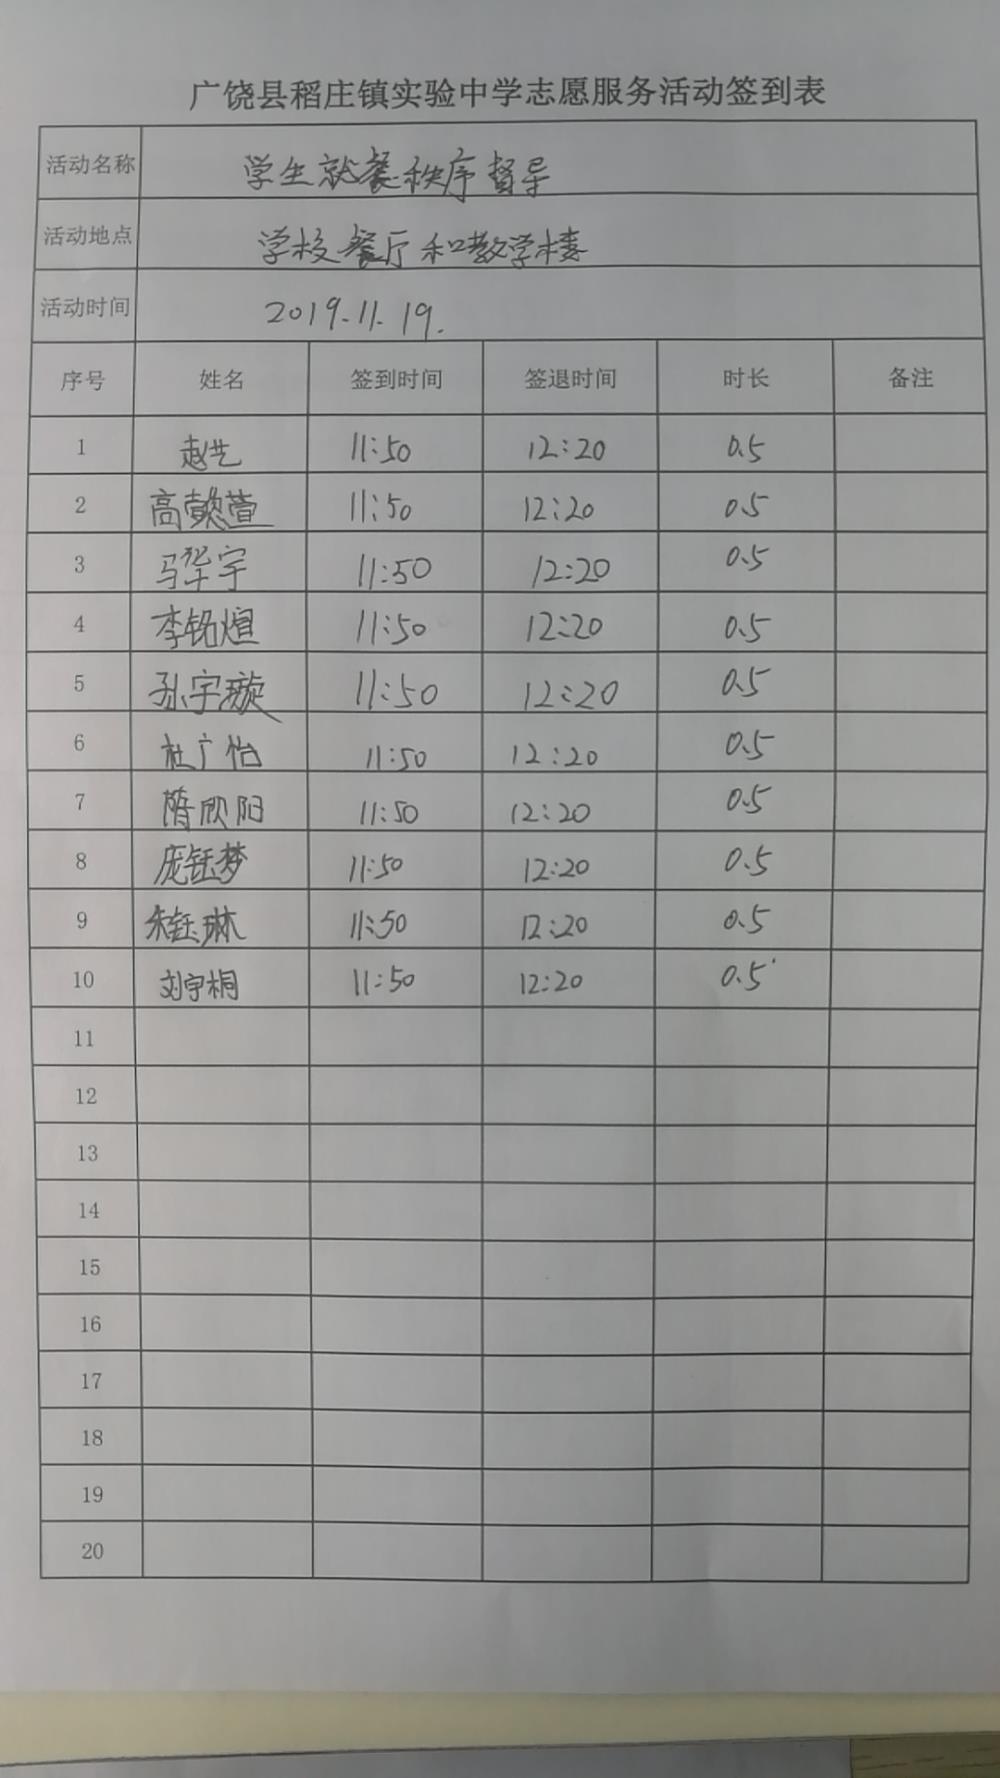 广饶县稻庄镇实验中学志愿服务活动签到表
活动名称 学生就餐秩序督导
活动地点 学校餐厅和教学楼
活动时间 2019.11.19.
序号 姓名 签到时间 签退时间 时长 备注
1 赵艺 11:50 12:20 0.5
2 高懿萱 11:50 12:20 0.5
3 马华宇 11:50 12:20 0.5
4 李铭煊 11:50 12:20 0.5
5 孙宇璇 11:50 12:20 0.5
6 杜广怡 11:50 12:20 0.5
7 隋欣阳 11:50 12:20 0.5
8 庞钰梦 11:50 12:20 0.5
9 朱钰琳 11:50 12:20 0.5
10 刘宇桐 11:50 12:20 0.5
11
12
13
14
15
16
17
18
19
20